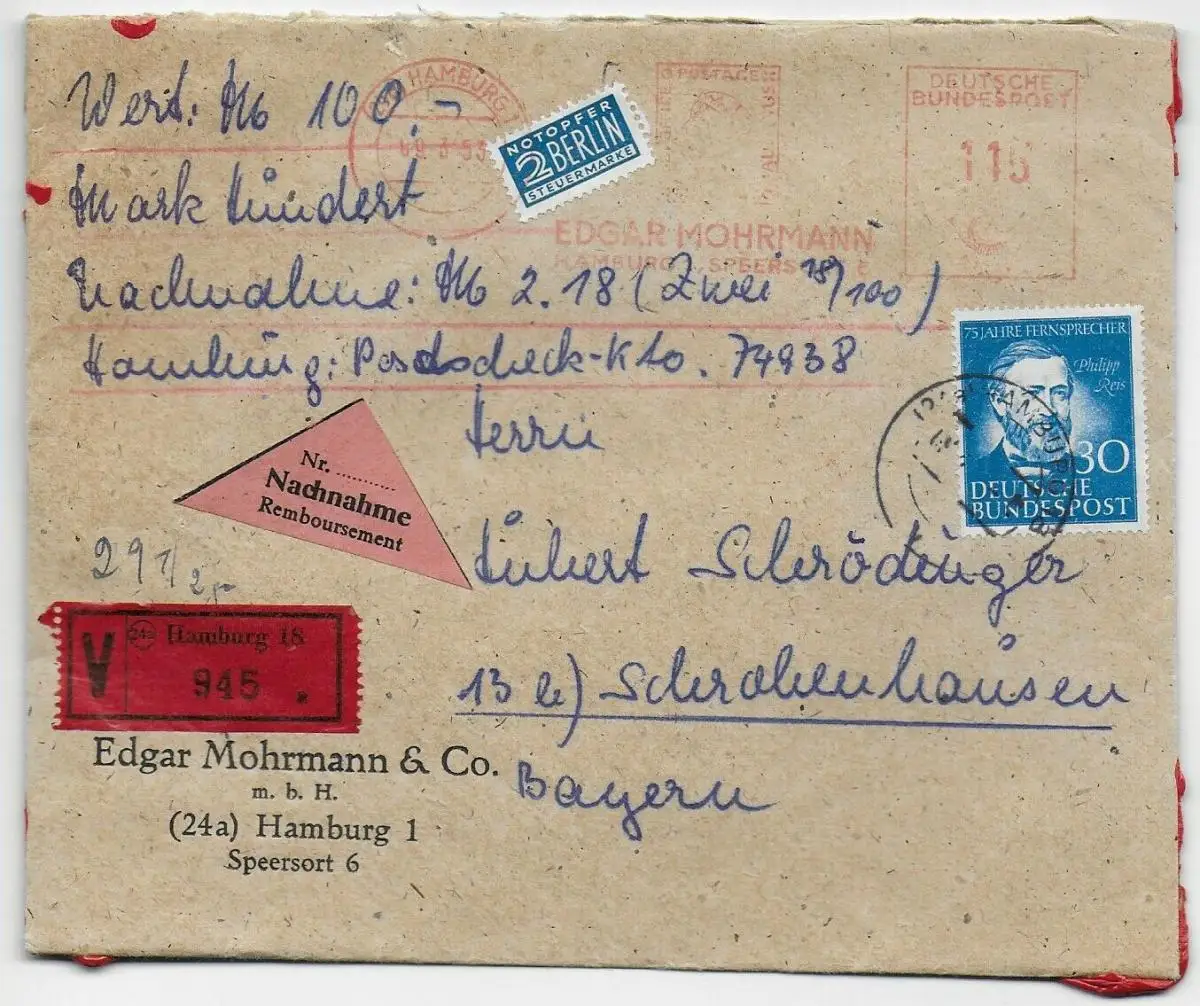 Wert: M 100,-
Mark Hundert
Nachnahme: M 2.18 (Zwei 18/100)
Hamburg: Postscheck-Kto. 74938
HAMBURG 1
NOTOPFER
2 BERLIN
STEUERMARKE
POSTAGE
EDGAR MOHRMANN
HAMBURG 1, SPEERSORT 6
DEUTSCHE
BUNDESPOST
115
75 JAHRE FERNSPRECHER
Philipp
Reis
30
DEUTSCHE
BUNDESPOST
HAMBURG
Nr. ............
Nachnahme
Remboursement
Herrn
Hubert Schrödinger
13b) Schrobenhausen
Bayern
29 1/2
V
24a Hamburg 18
945 *
Edgar Mohrmann & Co.
m. b. H.
(24a) Hamburg 1
Speersort 6